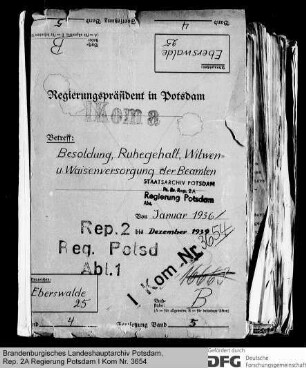 Eberswalde
25
4
B
Regierungspräsident in Potsdam
I Kom a
Betreff:
Besoldung, Ruhegehalt, Witwen-
u. Waisenversorgung der Beamten
STAATSARCHIV POTSDAM
Pr. Br. Rep. 2A
Regierung Potsdam
Abt.
Von Januar 1936
bis Dezember 1939
Rep. 2
Reg. Potsd
Abt. 1
I Kom Nr. 3654
B
Eberswalde
25
4
5
Brandenburgisches Landeshauptarchiv Potsdam,
Rep. 2A Regierung Potsdam I Kom Nr. 3654
Gefördert durch
DFG Deutsche
Forschungsgemeinschaft